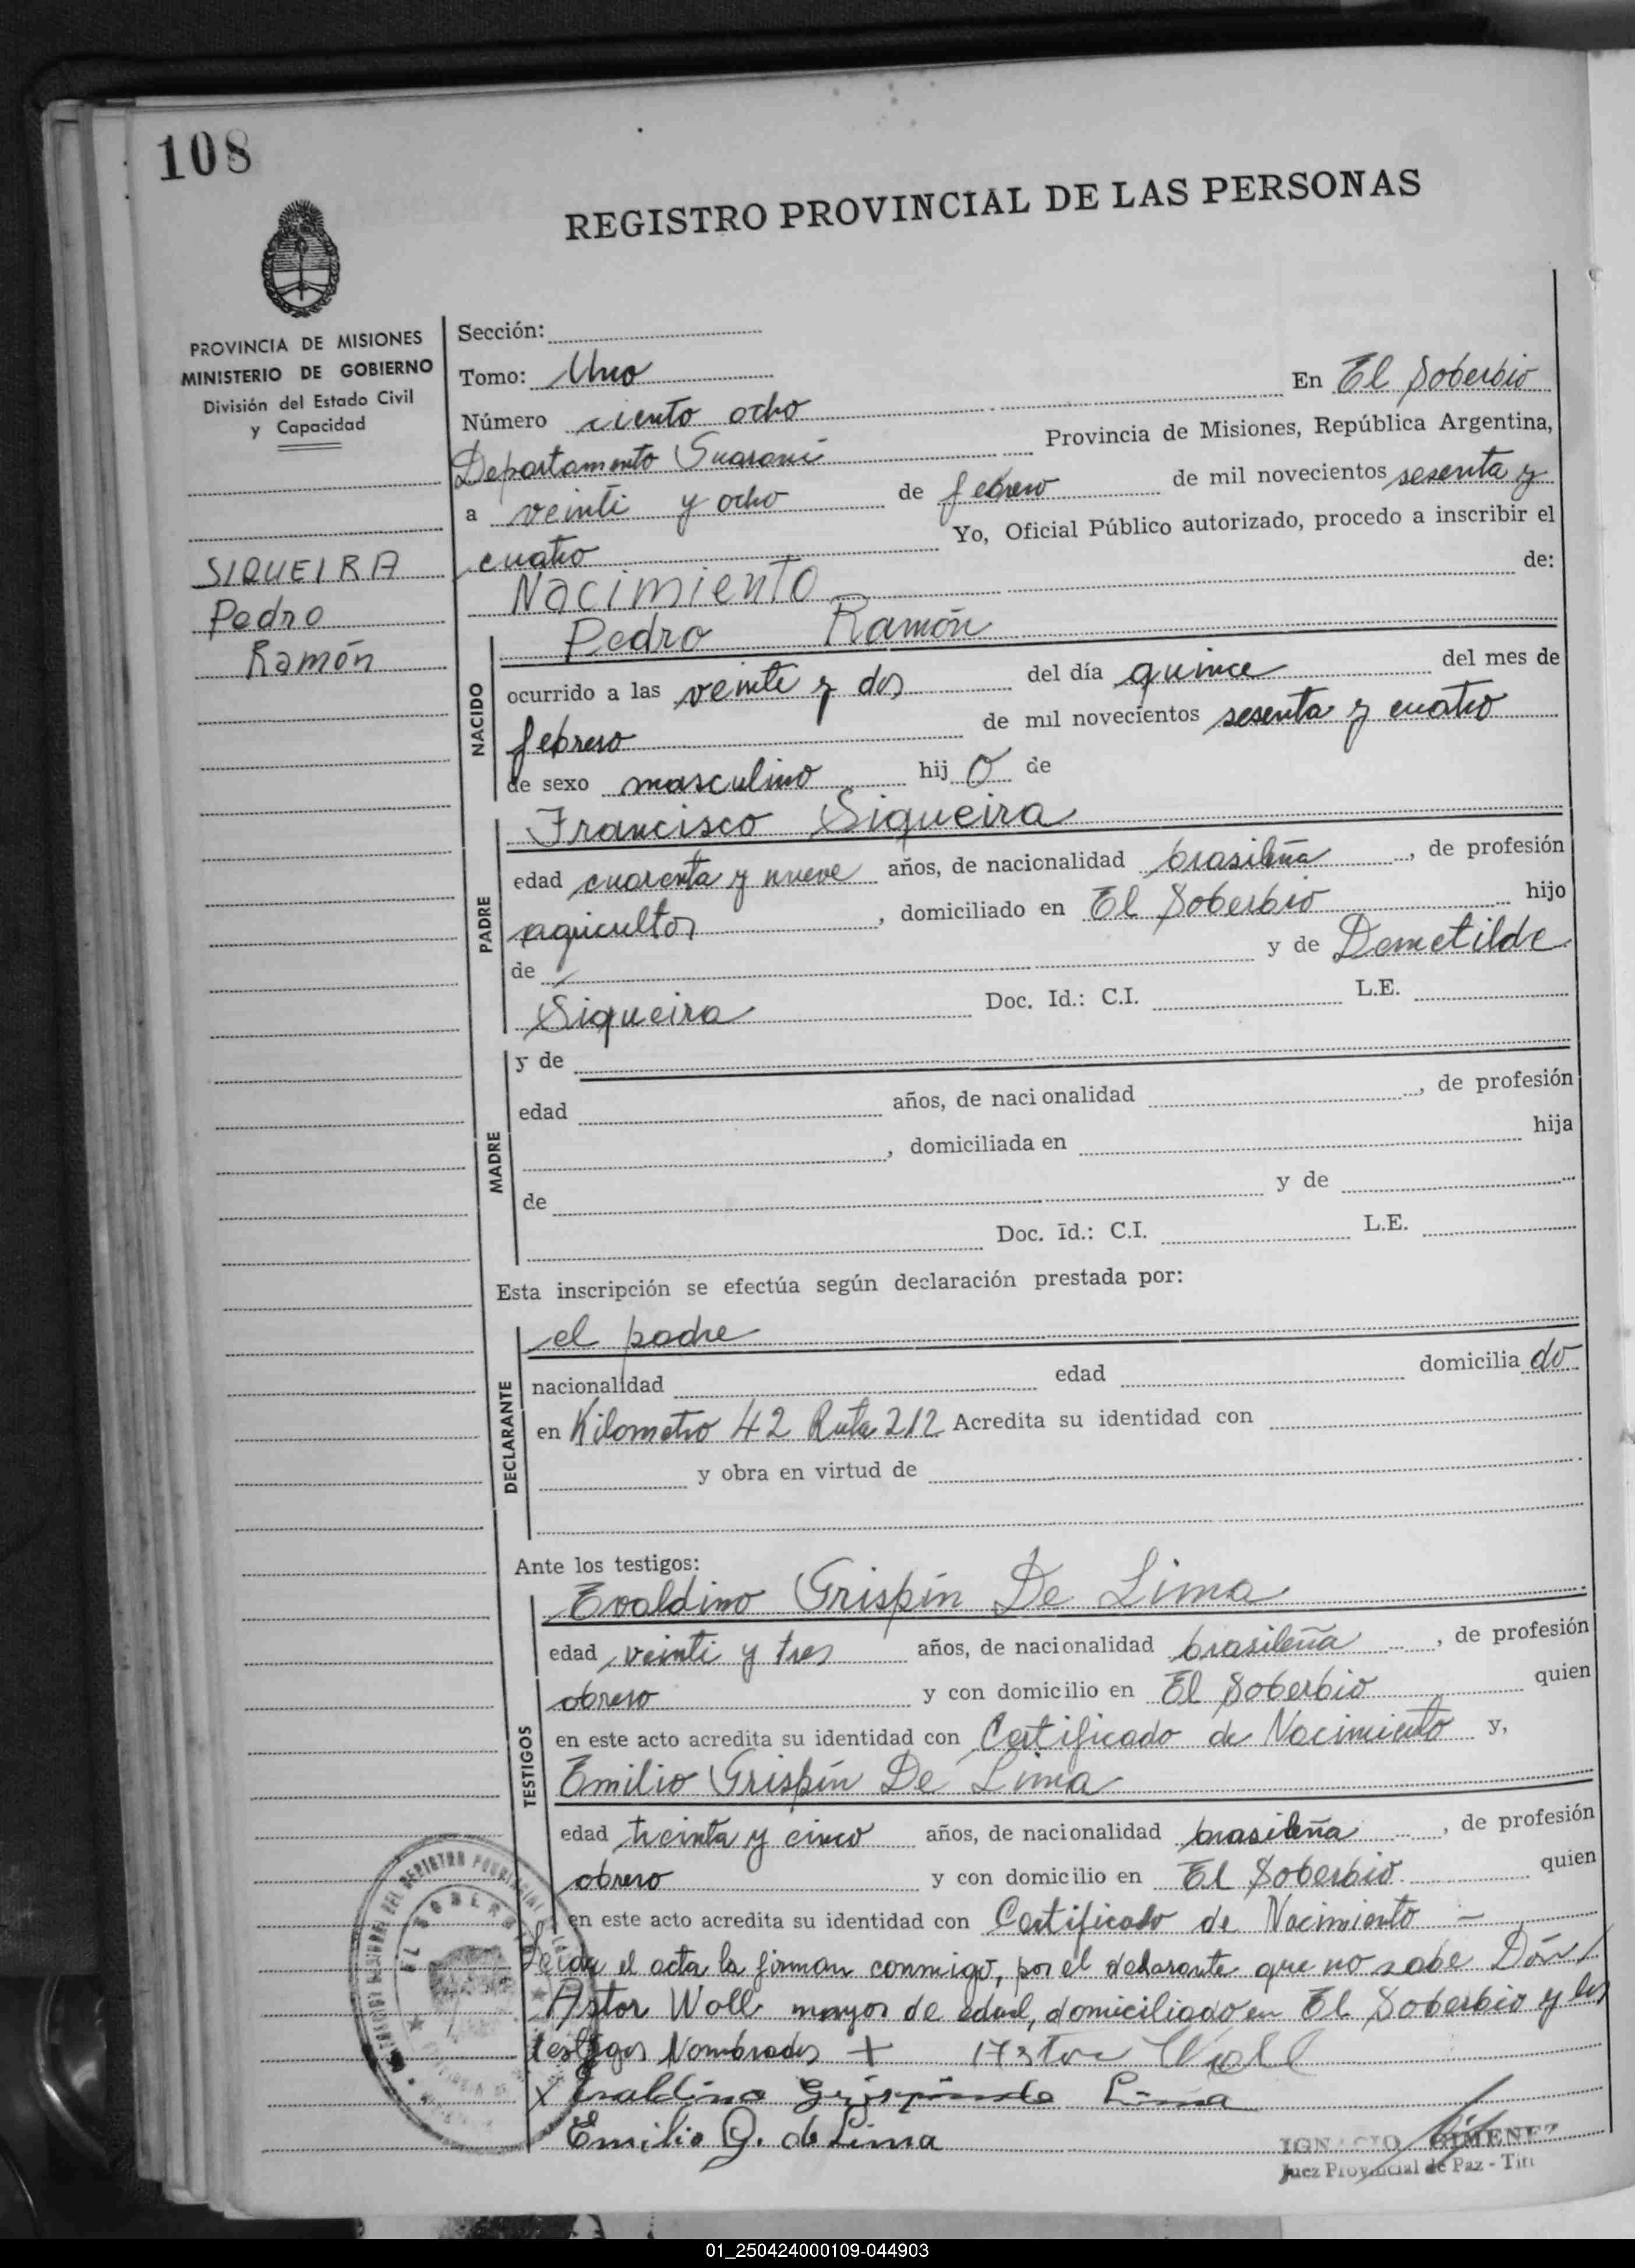 108
REGISTRO PROVINCIAL DE LAS PERSONAS
PROVINCIA DE MISIONES
MINISTERIO DE GOBIERNO
División del Estado Civil
y Capacidad
SIQUEIRA
Pedro
Ramón
Sección:
Tomo: Uno
En El Soberbio
Número ciento ocho
Departamento Guaraní Provincia de Misiones, República Argentina,
a veinti y ocho de febrero de mil novecientos sesenta y
cuatro Yo, Oficial Público autorizado, procedo a inscribir el
Nacimiento de:
NACIDO
Pedro Ramón
ocurrido a las veinte y dos del día quince del mes de
febrero de mil novecientos sesenta y cuatro
de sexo masculino hij o de
PADRE
Francisco Siqueira
edad cuarenta y nueve años, de nacionalidad brasileña, de profesión
agricultor, domiciliado en El Soberbio hijo
de y de Demetilde
Siqueira Doc. Id.: C.I. L.E.
MADRE
y de
edad años, de nacionalidad , de profesión
, domiciliada en hija
de y de
Doc. Id.: C.I. L.E.
Esta inscripción se efectúa según declaración prestada por:
DECLARANTE
el padre
nacionalidad edad domicilia do
en Kilometro 42 Ruta 212 Acredita su identidad con
y obra en virtud de
Ante los testigos:
TESTIGOS
Evaldino Grispín De Lima
edad veinti y tres años, de nacionalidad brasileña, de profesión
obrero y con domicilio en El Soberbio quien
en este acto acredita su identidad con Certificado de Nacimiento y,
Emilio Grispín De Lima
edad treinta y cinco años, de nacionalidad brasileña, de profesión
obrero y con domicilio en El Soberbio. quien
en este acto acredita su identidad con Certificado de Nacimiento —
Leída el acta la firman conmigo, por el declarante que no sabe Dón
Astor Woll mayor de edad, domiciliado en El Soberbio y los
testigos Nombrados + Astor Woll
x Evaldino Grispín de Lima
Emilio G. de Lima
IGNACIO GIMENEZ
Juez Provincial de Paz - Tit
EL SOBERBIO
01_250424000109-044903